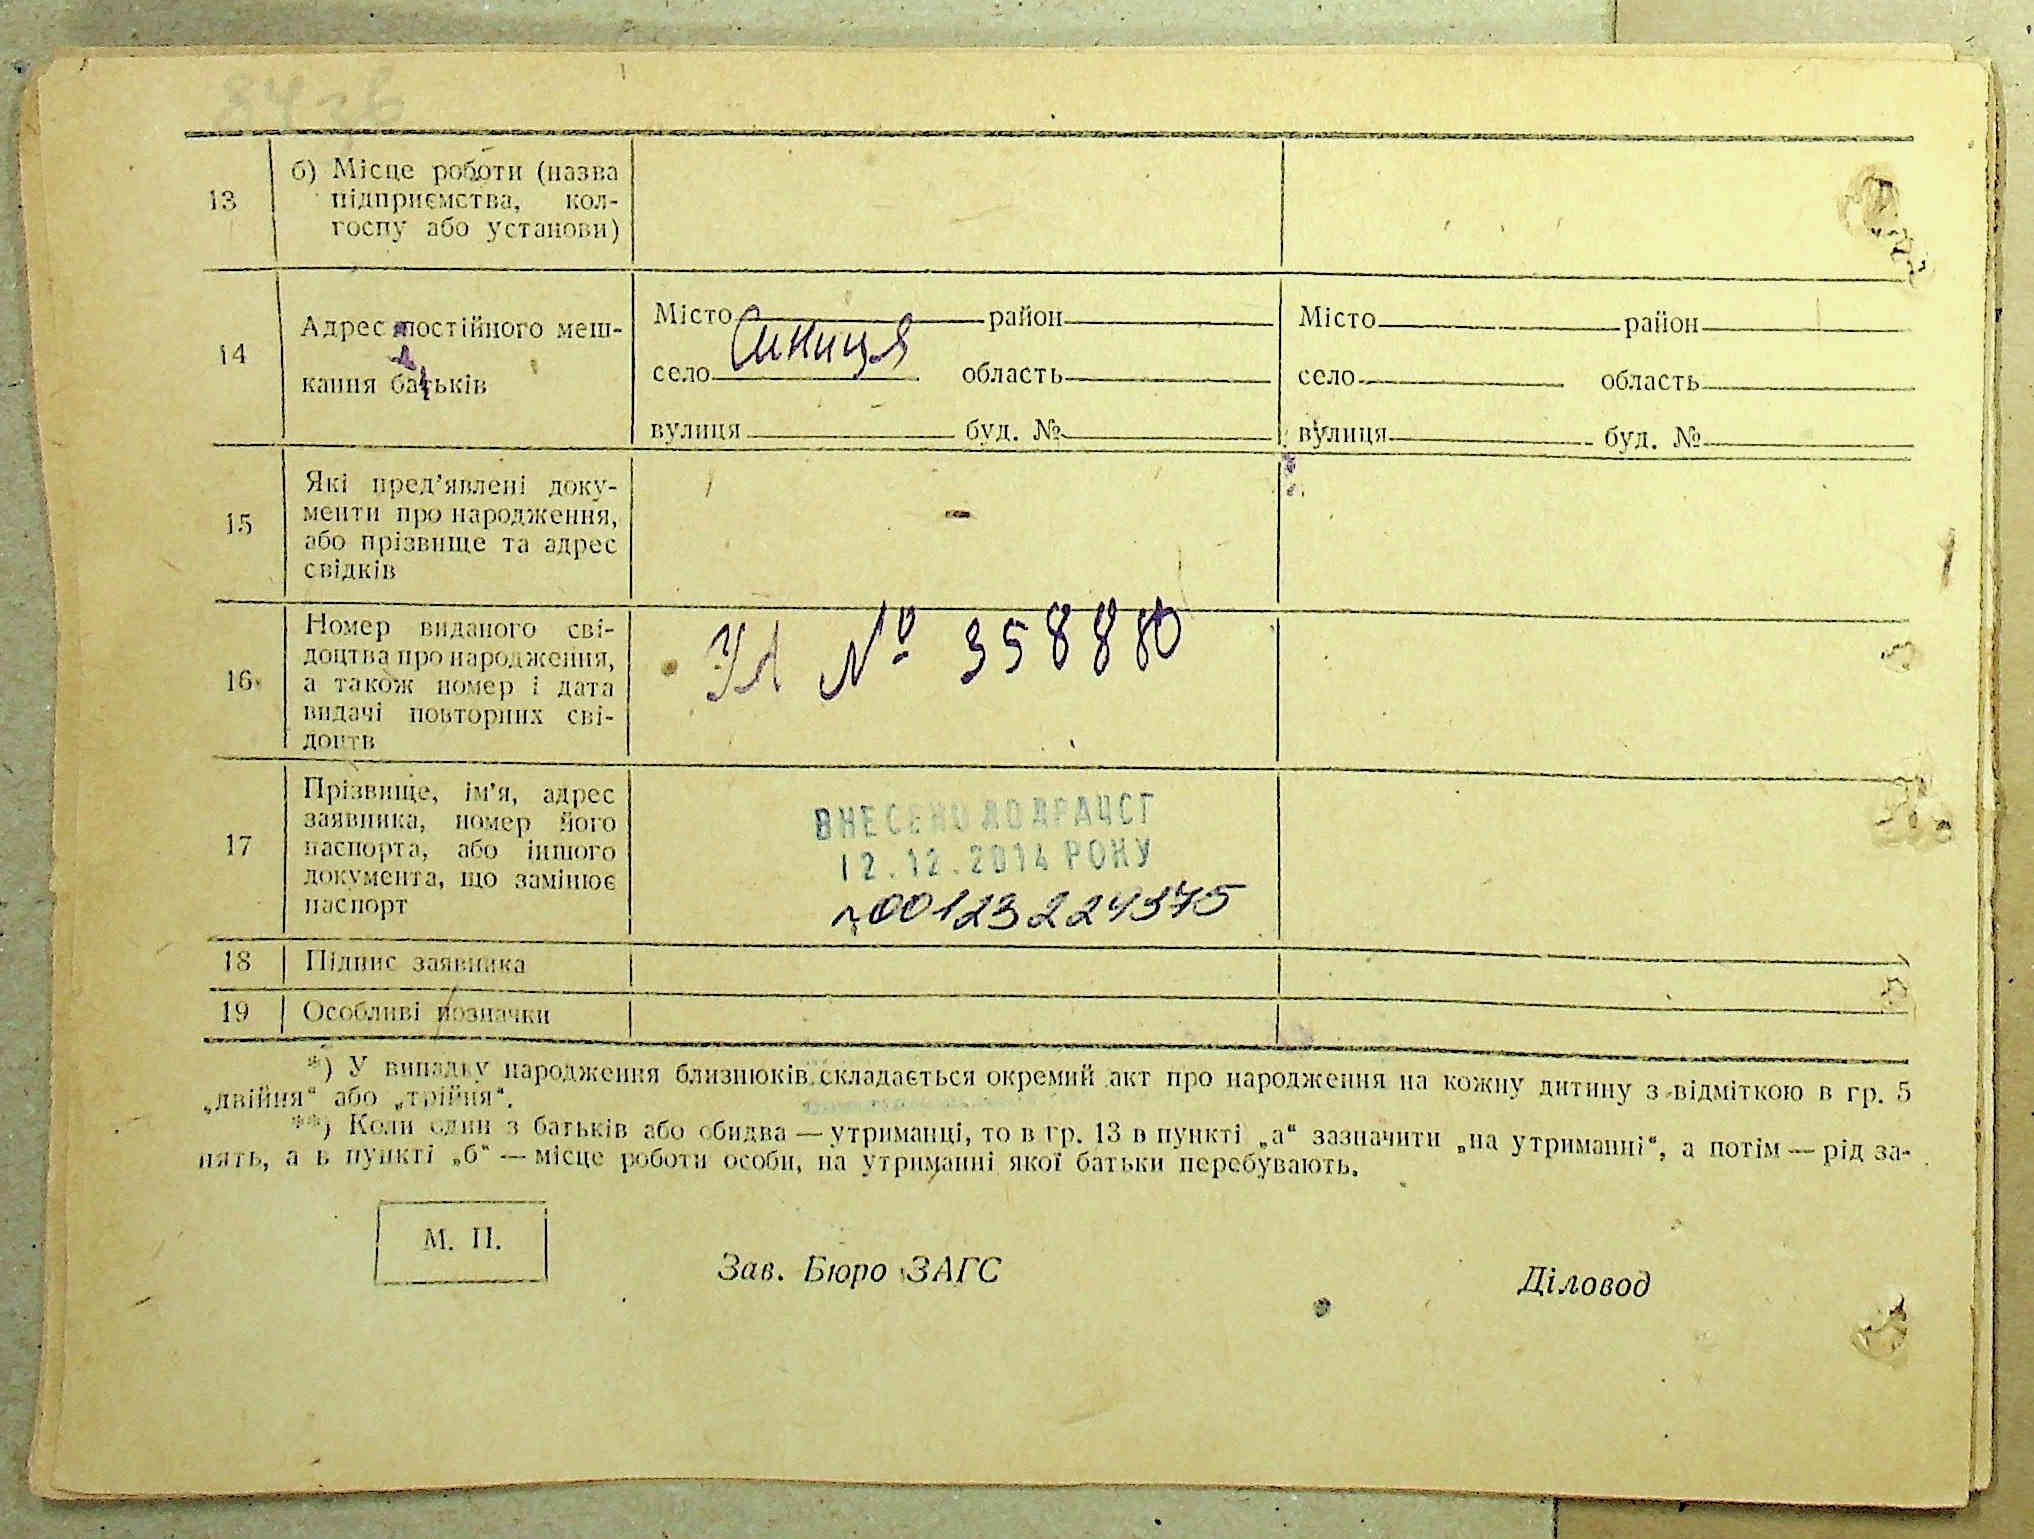 84 зв
13
б) Місце роботи (назва
підприємства, кол-
госпу або установи)
14
Адрес постійного меш-
кання батьків
Місто район
село Синиця область
вулиця буд. №
Місто район
село область
вулиця буд. №
15
Які пред'явлені доку-
менти про народження,
або прізвище та адрес
свідків
16
Номер виданого сві-
доцтва про народження,
а також номер і дата
видачі повторних сві-
доцтв
УЛ № 358880
17
Прізвище, ім'я, адрес
заявника, номер його
паспорта, або іншого
документа, що замінює
паспорт
ВНЕСЕНО ДО ДРАЦСГ
12.12.2014 РОКУ
00123224375
18 Підпис заявника
19 Особливі позначки
*) У випадку народження близнюків складається окремий акт про народження на кожну дитину з відміткою в гр. 5
„двійня“ або „трійня“.
**) Коли один з батьків або обидва — утриманці, то в гр. 13 в пункті „а“ зазначити „на утриманні“, а потім — рід за-
нять, а в пункті „б“ — місце роботи особи, на утриманні якої батьки перебувають.
М. П.
Зав. Бюро ЗАГС
Діловод